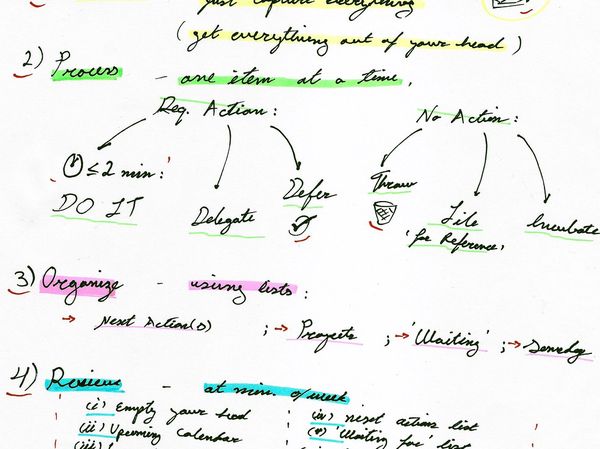 just capture everything
(get everything out of your head)
2) Process - one item at a time.
Req. Action: No Action:
≤2 min: Defer Throw
DO IT Delegate File Incubate
'for Reference'
3) Organize - using lists:
→ Next Action(s) ; → Projects ; → 'Waiting' ; → Someday
4) Review - at min. o/week
(i) Empty your head (iv) next actions list
(ii) Upcoming Calendar (v) 'Waiting for' list
(iii)